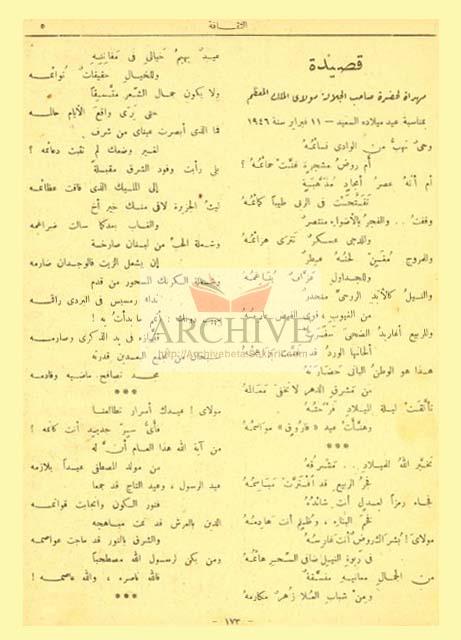 ٥
الثقافة
قصيدة
مهداة لحضرة صاحب الجلالة مولاى الملك المعظم
بمناسبة عيد ميلاده السعيد — ١١ فبراير سنة ١٩٤٦
وحىٌ نهب من الوادى نسائمُه
أم روض مشجرة غنّت حمائمُه ؟
أم أنه عصر أمجاد مذهّبة
تفتّحت فى الربى طيبا كمائمُه
وقفتُ . . والفجر بالأضواء منتصر
وللدجى عسكر تترى هزائمُه
وللمروج
وللجداول
والنيل كالأبد الروحىّ منحدر
من الغيوب
والربيع أغاريد الضحى
ألحانها الورد
هذا هو الوطن البانى حضارته
من مشرق الدهر لا تخفى معالمه
تألقت ليلة الميلاد فرحته
وهنّأت عيد « فاروق » مواسمُه
***
تخيّر الله للميلاد . . مشرقه
فجر الربيع قد افترّت مباسمُه
فجاء رمزاً لعدل أنت شائده
فخم البناء ، وظلم أنت هادمُه
مولاى ! بشراك روض أنت غارسه
فى ربوة النيل ضافى السحر هائمُه
من الجمال معانيه منسّقة
ومن شباب العلا زهر مكارمُه
عيد يهيم خيالى فى مفاتنه
وللخيال حقيقات توائمه
ولا يكون جمال الشعر متّسقا
حتى يرى واقع الأيام حالمه
فما الذى أبصرت عيناى من شرف
لغير وضعك لم تثبت دعائمه ؟
بلى رأيت وفود الشرق مقبلة
إلى المليك الذى فاقت عظائمه
ليث الجزيرة لاقى منك خير أخ
والغاب بعدكما سالت ضراغمه
وشملة الحق من لبنان صارخة
إن يشعل الزيت فالوجدان ضارمه
الكرنك المسحور من قدم
نداء رمسيس فى البردى راقمه
فى يد الذكرى وصارمه
مجد تصافح ماضيه وقادمه
***
مولاى ! عيدك أسرار تطالعنا
فأىّ سر جديد أنت كاتمه !
من آية الله هذا العام أن له
من مولد المصطفى عيداً يلازمه
عيد الرسول ، وعيد التاج قد جمعا
فنور الكون وانجابت قواتمه
الدين بالعرش قد تمت مباهجه
والشرق بالنور قد ماجت عواصمه
ومن يكن لرسول الله مصطحبا
فالله ناصره ، والله عاصمه !
***
ARCHIVE
http://Archivebeta.Sakhrit.com
— ١٧٣ —